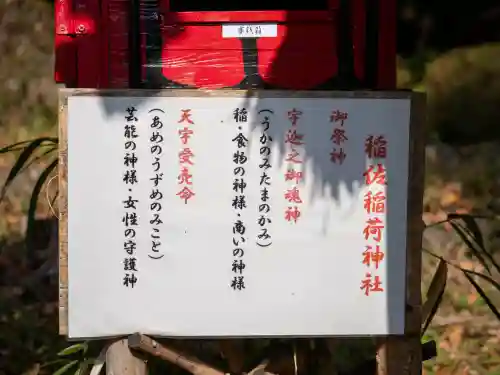 事務箱
稲佐稲荷神社
御祭神
宇迦之御魂神
(うかのみたまのかみ)
稲・食物の神様・商いの神様
天宇受売命
(あめのうずめのみこと)
芸能の神様・女性の守護神